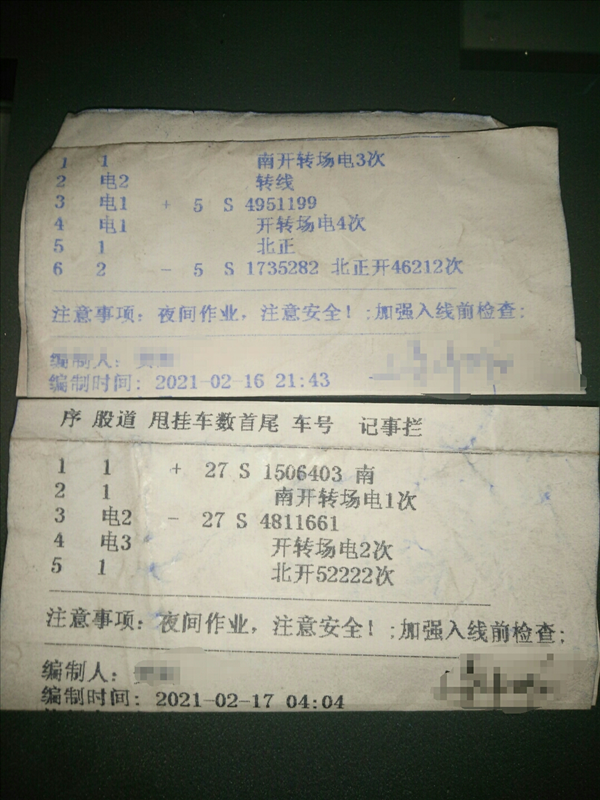 1 1 南开转场电3次
2 电2 转线
3 电1 + 5 S 4951199
4 电1 开转场电4次
5 1 北正
6 2 - 5 S 1735282 北正开46212次
注意事项: 夜间作业,注意安全!;加强入线前检查;
编制人:
编制时间: 2021-02-16 21:43
序 股道 甩挂车数首尾 车号 记事拦
1 1 + 27 S 1506403 南
2 1 南开转场电1次
3 电2 - 27 S 4811661
4 电3 开转场电2次
5 1 北开52222次
注意事项: 夜间作业,注意安全!;加强入线前检查;
编制人:
编制时间: 2021-02-17 04:04